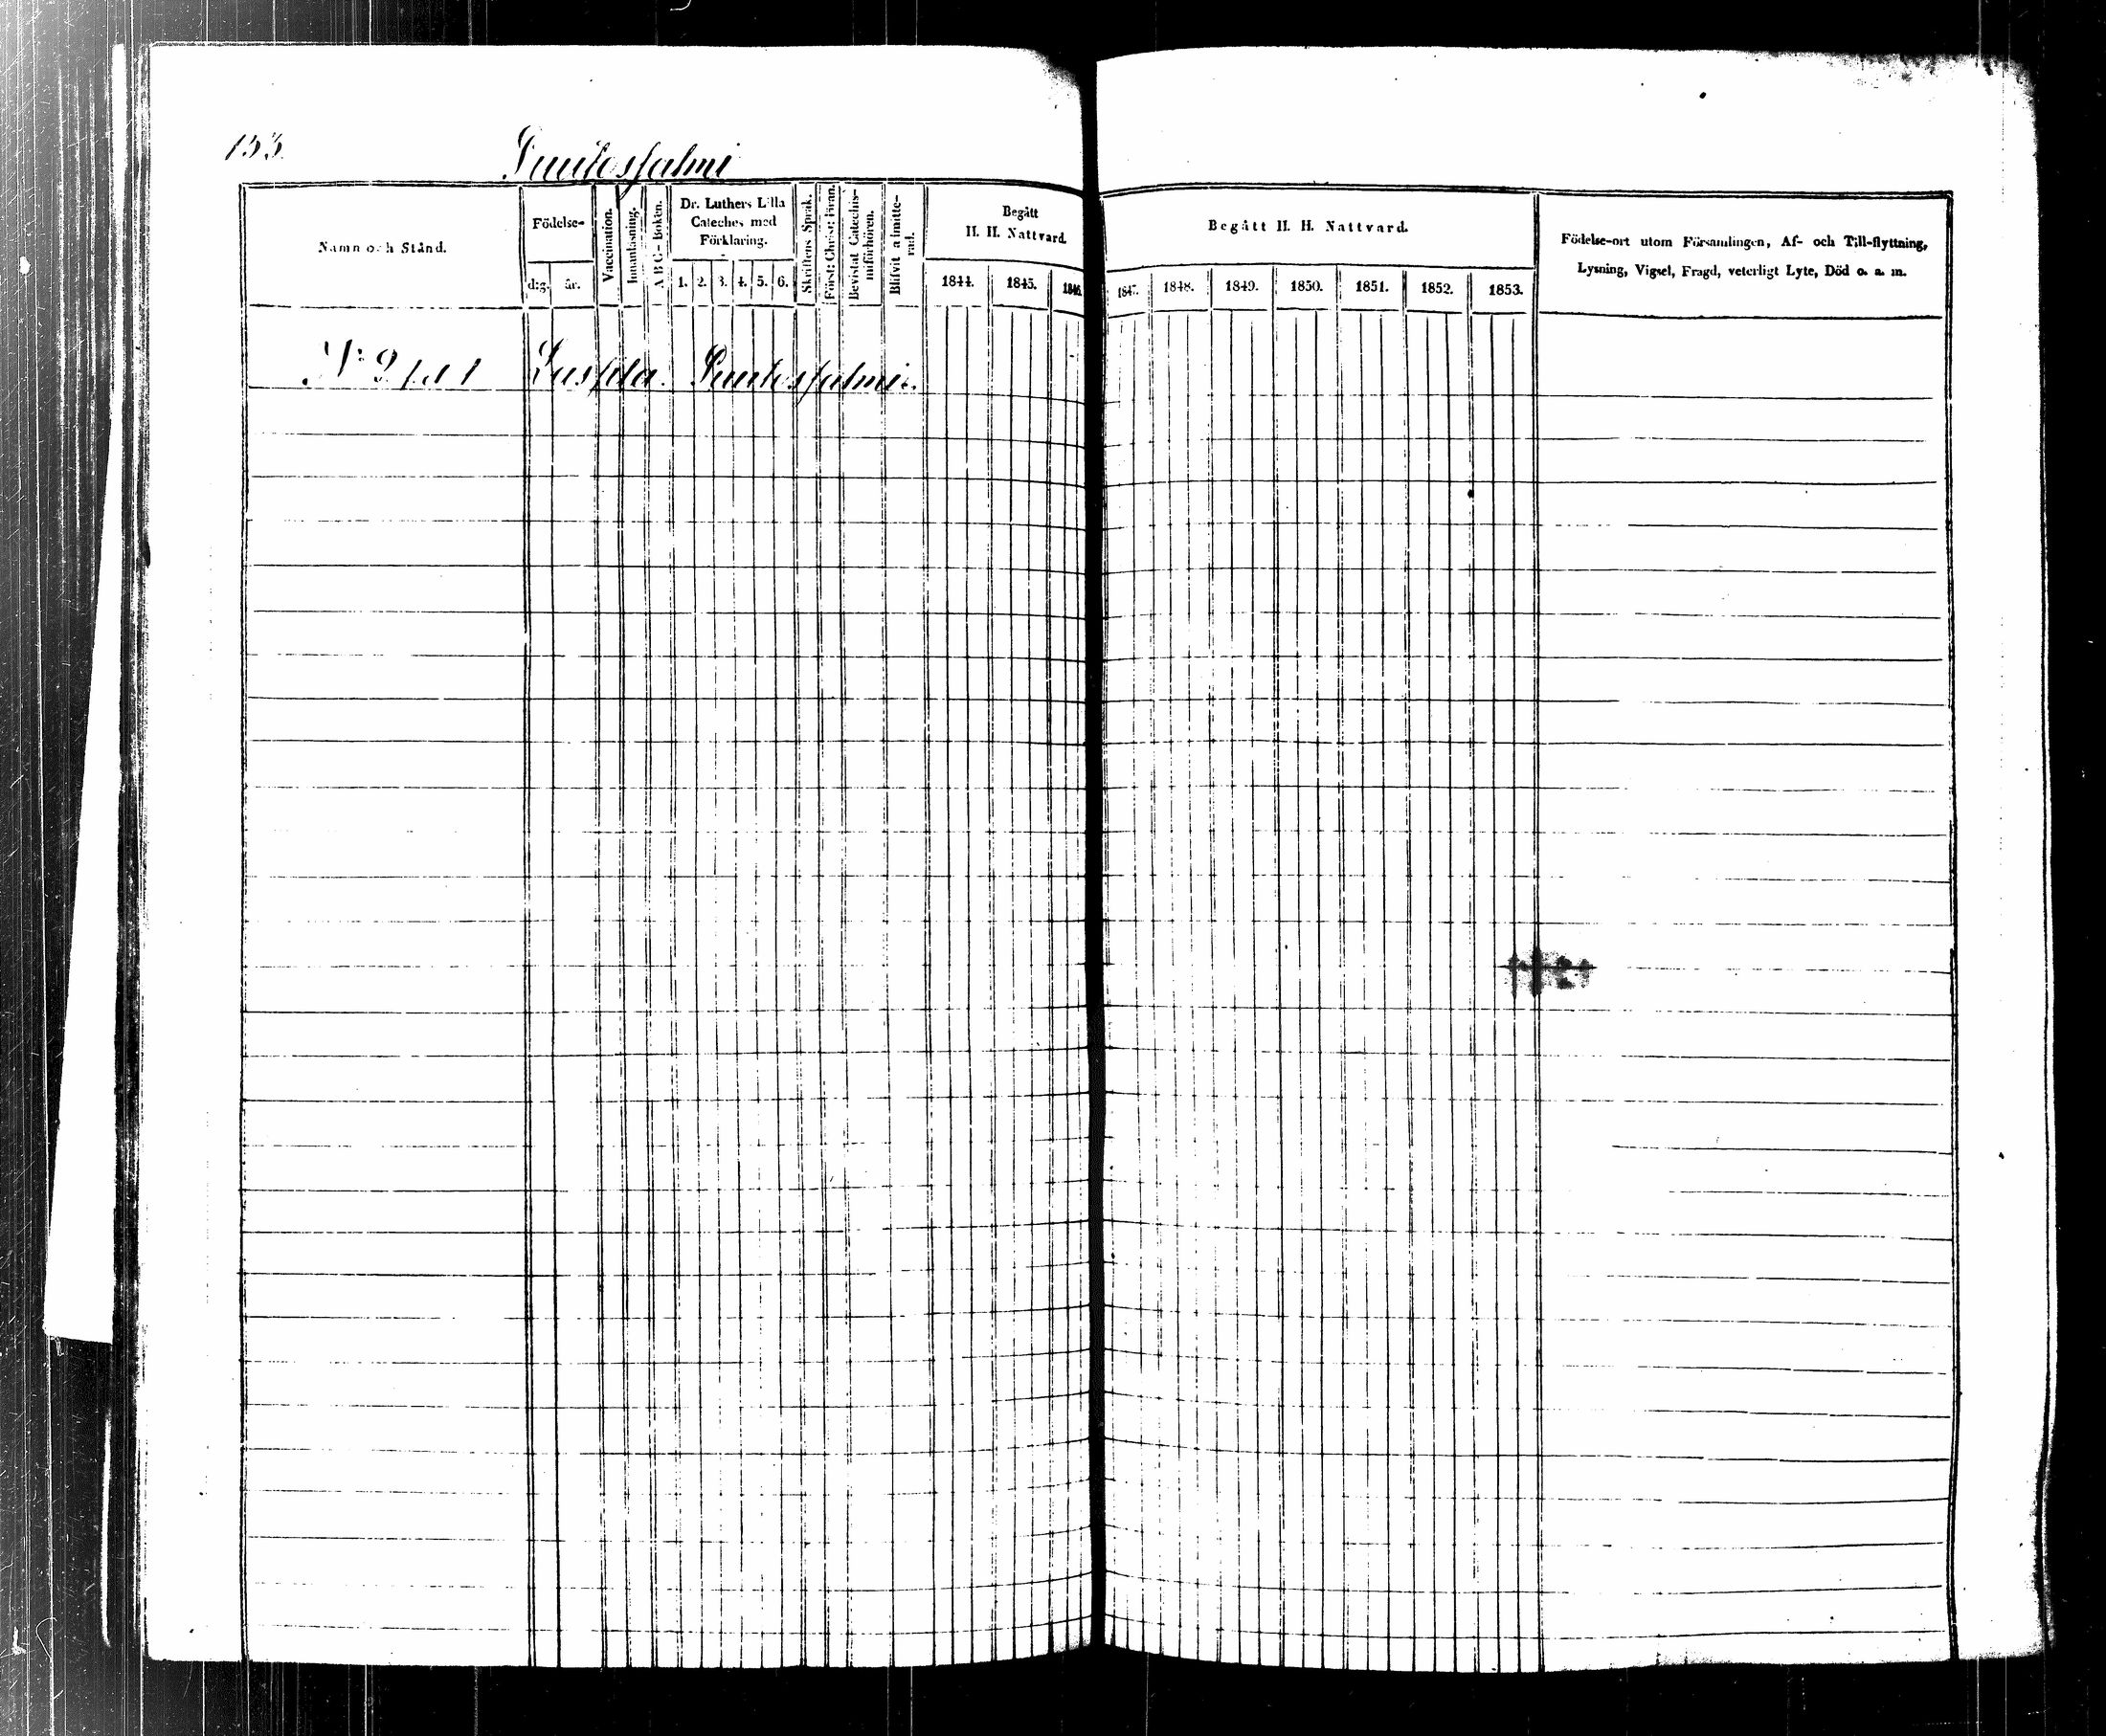 153.
Suntosjalmi
Namn och Stånd.
Födelse-
d:g.
år.
Vaccination.
Innanläsning.
A B C-Boken.
Dr. Luthers Lilla
Cateches med
Förklaring.
1. 2. 3. 4. 5. 6.
Skriftens Språk.
Först: Christ: Fran.
Bevistat Catechis-
miförhören.
Blifvit admitte-
rad.
Begått
H. H. Nattvard.
1844. 1845. 1846.
Begått H. H. Nattvard.
1847. 1848. 1849. 1850. 1851. 1852. 1853.
Födelse-ort utom Församlingen, Af- och Till-flyttning,
Lysning, Vigsel, Fragd, veterligt Lyte, Död o. a. m.
N:o 9 Suntosjalmi.